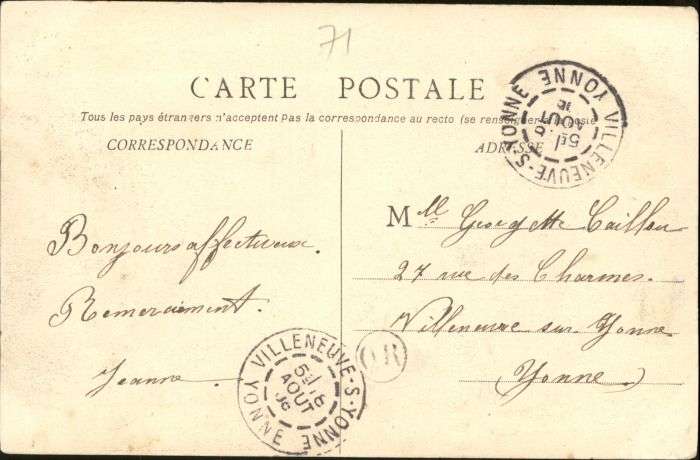 71
CARTE POSTALE
Tous les pays étrangers n'acceptent pas la correspondance au recto (se renseigner à la poste
CORRESPONDANCE
ADRESSE
VILLENEUVE-S-YONNE YONNE
5E/
AOUT
Bonjours affectueux.
Remerciement.
Jeanne.
Mlle Georgette Caillou
27 rue des Charmes.
Villeneuve sur Yonne
(Yonne)
OR
VILLENEUVE-S-YONNE YONNE
5E/16
AOUT
06